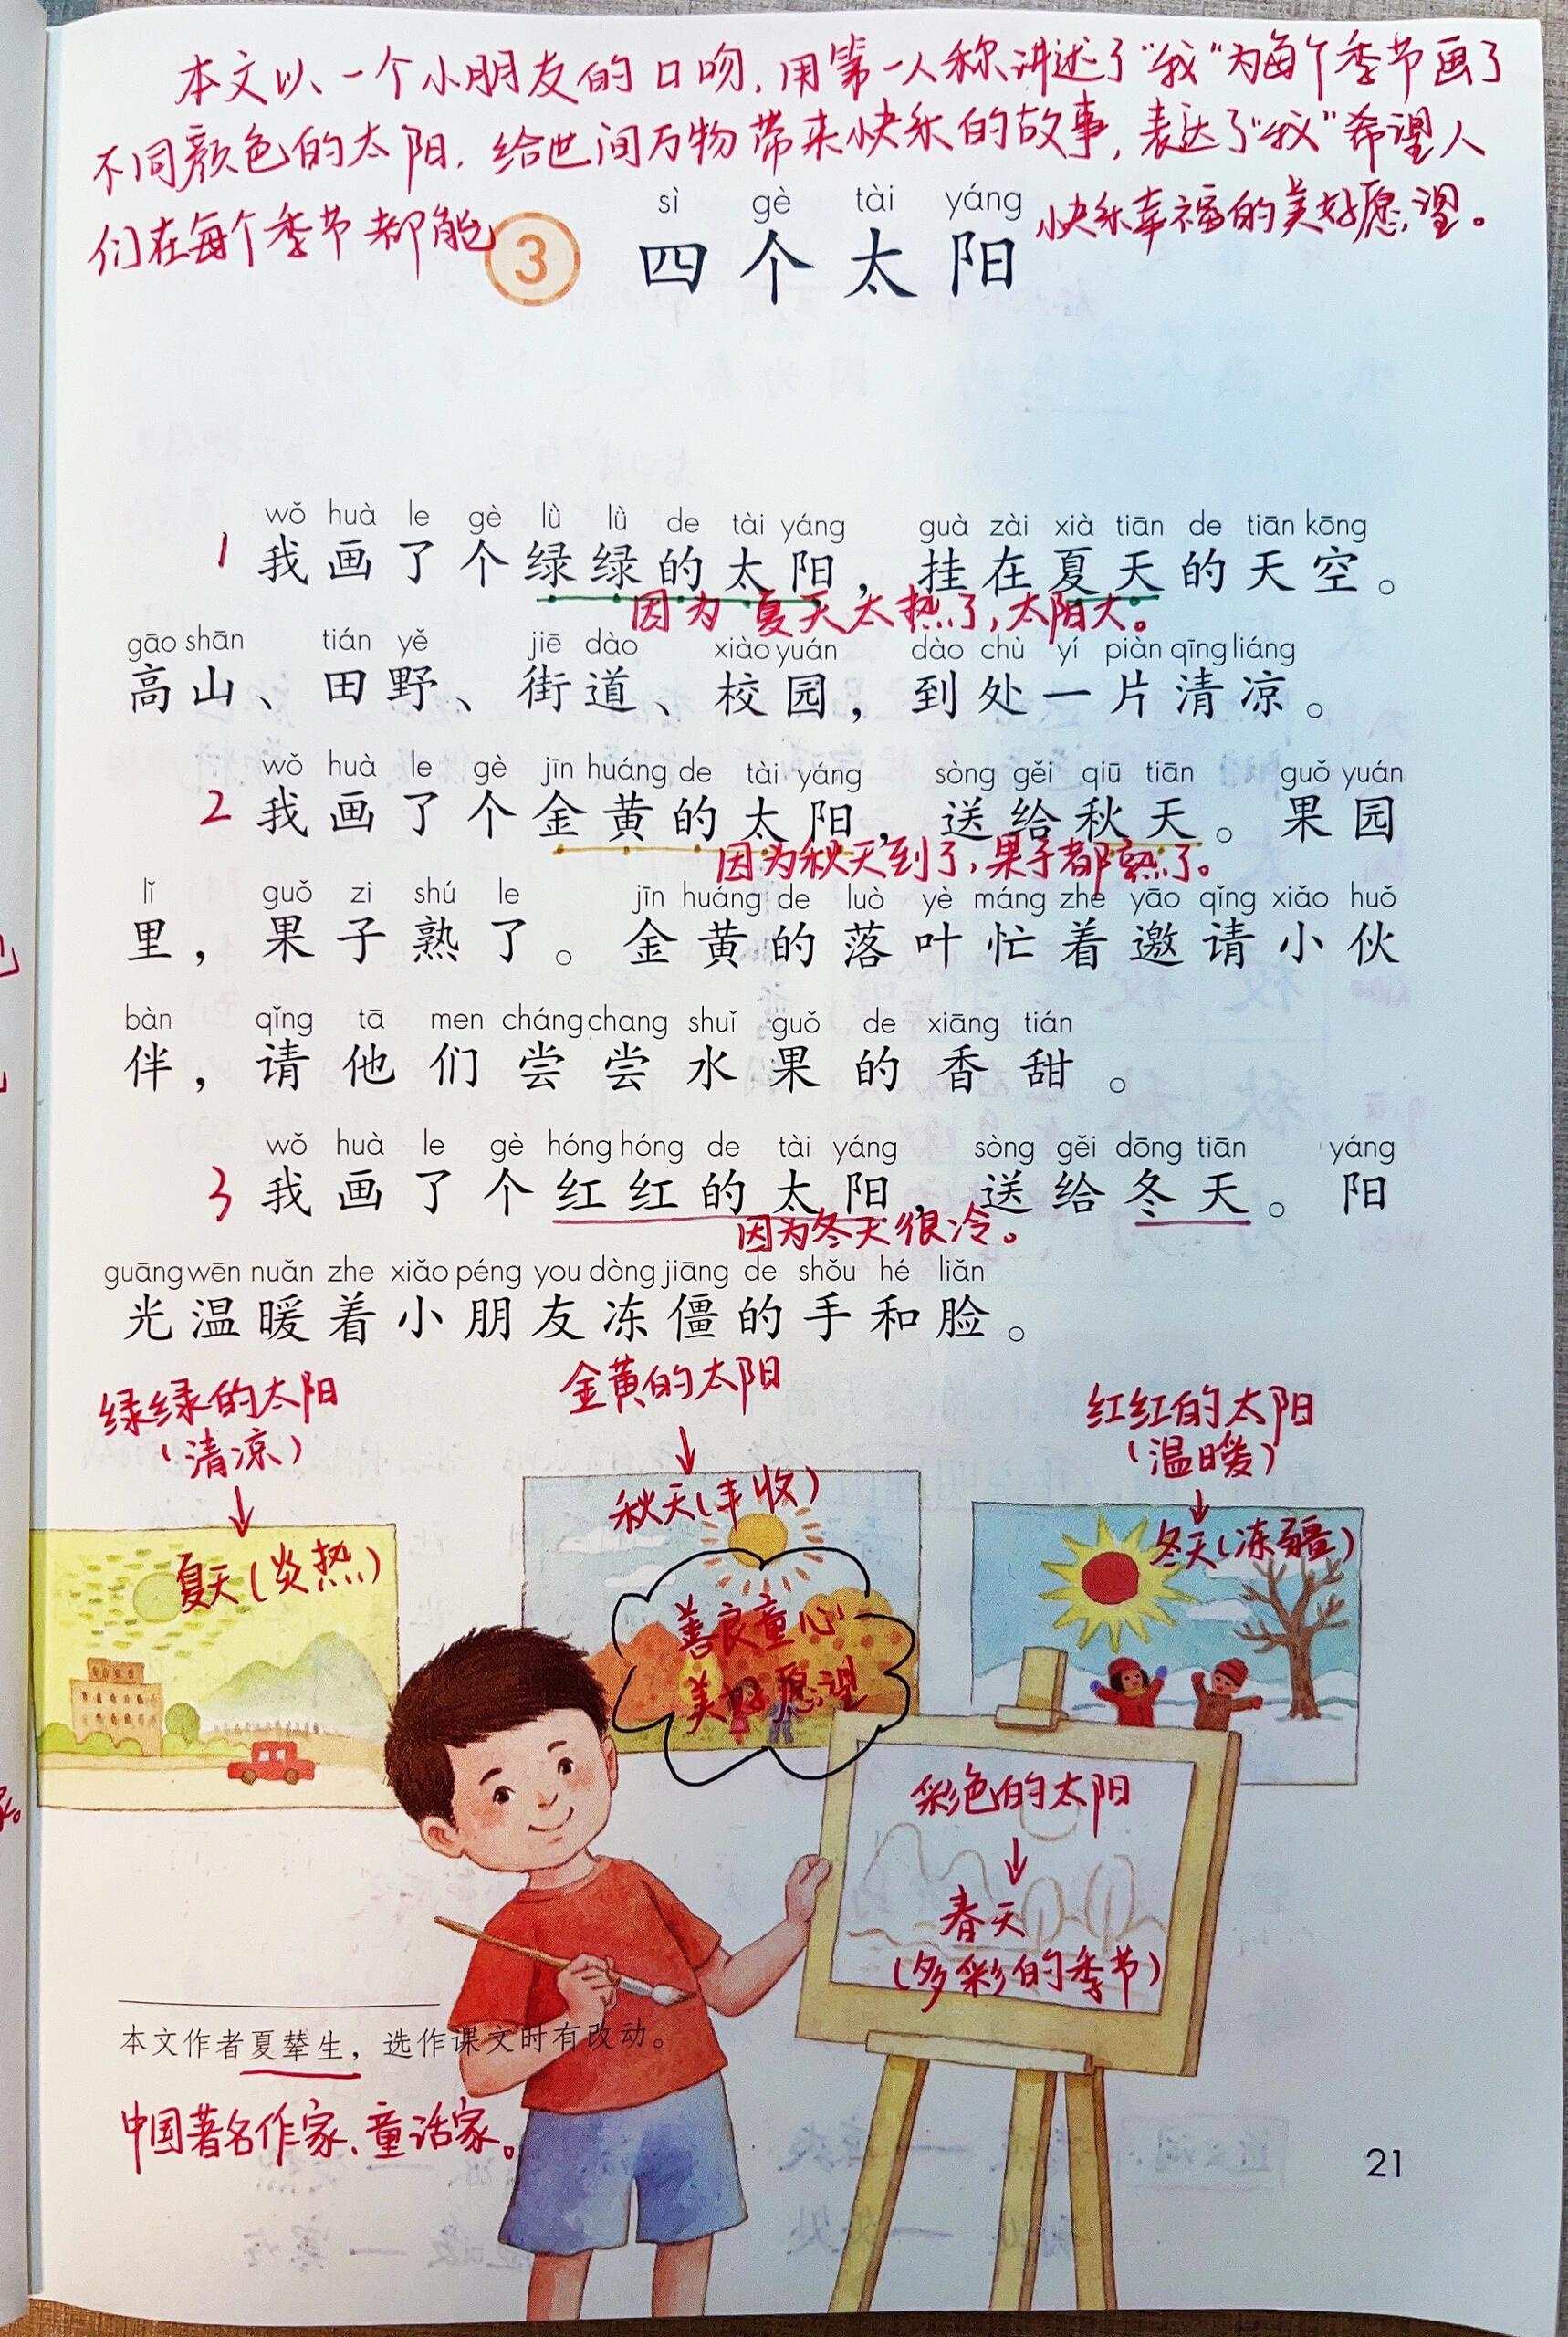 本文以一个小朋友的口吻，用第一人称讲述了“我”为每个季节画了
不同颜色的太阳，给世间万物带来快乐的故事，表达了“我”希望人
们在每个季节都能快乐幸福的美好愿望。
sì gè tài yáng
3 四个太阳
wǒ huà le gè lǜ lǜ de tài yáng guà zài xià tiān de tiān kōng
1 我画了个绿绿的太阳，挂在夏天的天空。
因为夏天太热了，太阳大。
gāo shān tián yě jiē dào xiào yuán dào chù yí piàn qīng liáng
高山、田野、街道、校园，到处一片清凉。
wǒ huà le gè jīn huáng de tài yáng sòng gěi qiū tiān guǒ yuán
2 我画了个金黄的太阳，送给秋天。果园
因为秋天到了，果子都熟了。
lǐ guǒ zi shú le jīn huáng de luò yè máng zhe yāo qǐng xiǎo huǒ
里，果子熟了。金黄的落叶忙着邀请小伙
bàn qǐng tā men cháng chang shuǐ guǒ de xiāng tián
伴，请他们尝尝水果的香甜。
wǒ huà le gè hóng hóng de tài yáng sòng gěi dōng tiān yáng
3 我画了个红红的太阳，送给冬天。阳
因为冬天很冷。
guāng wēn nuǎn zhe xiǎo péng you dòng jiāng de shǒu hé liǎn
光温暖着小朋友冻僵的手和脸。
绿绿的太阳
（清凉）
夏天（炎热）
金黄的太阳
秋天（丰收）
红红的太阳
（温暖）
冬天（冻僵）
善良童心
美好愿望
彩色的太阳
春天
（多彩的季节）
本文作者夏辇生，选作课文时有改动。
中国著名作家、童话家。
21